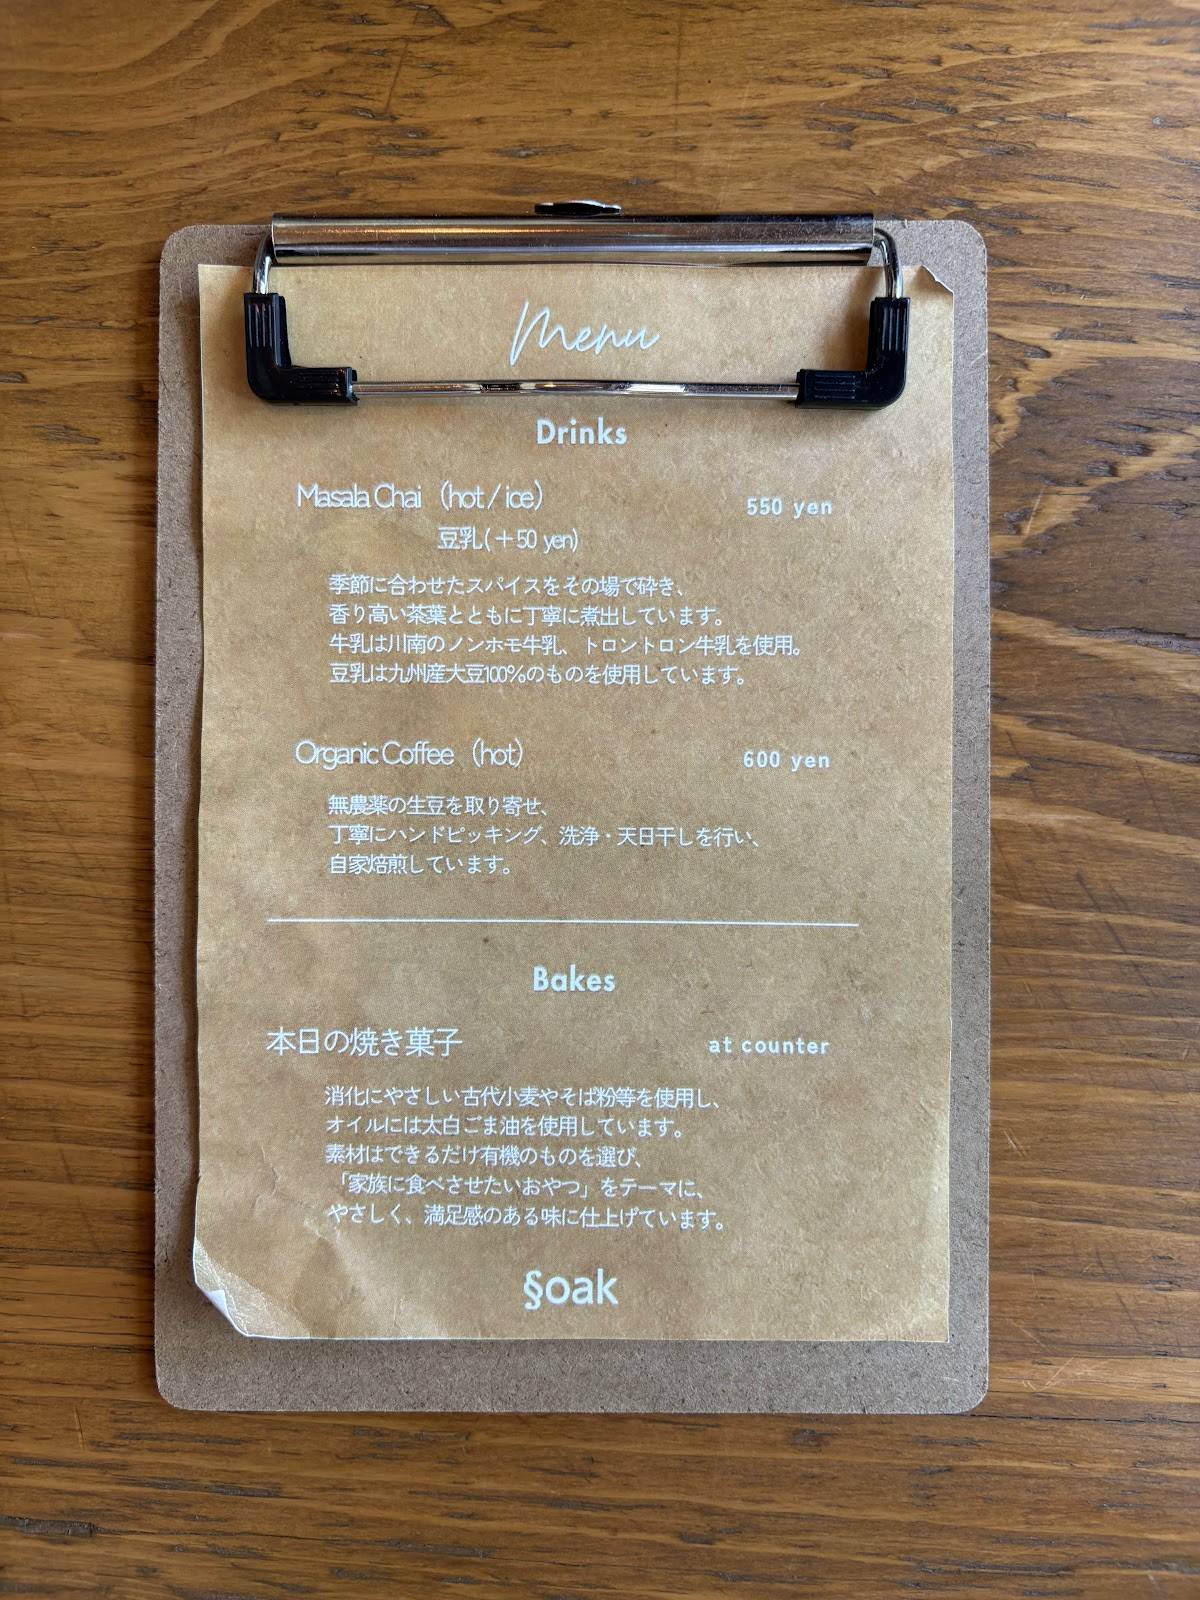 Menu
Drinks
Masala Chai （hot / ice） 550 yen
豆乳(＋50 yen)
季節に合わせたスパイスをその場で砕き、
香り高い茶葉とともに丁寧に煮出しています。
牛乳は川南のノンホモ牛乳、トロントロン牛乳を使用。
豆乳は九州産大豆100%のものを使用しています。
Organic Coffee （hot） 600 yen
無農薬の生豆を取り寄せ、
丁寧にハンドピッキング、洗浄・天日干しを行い、
自家焙煎しています。
Bakes
本日の焼き菓子 at counter
消化にやさしい古代小麦やそば粉等を使用し、
オイルには太白ごま油を使用しています。
素材はできるだけ有機のものを選び、
「家族に食べさせたいおやつ」をテーマに、
やさしく、満足感のある味に仕上げています。
§oak